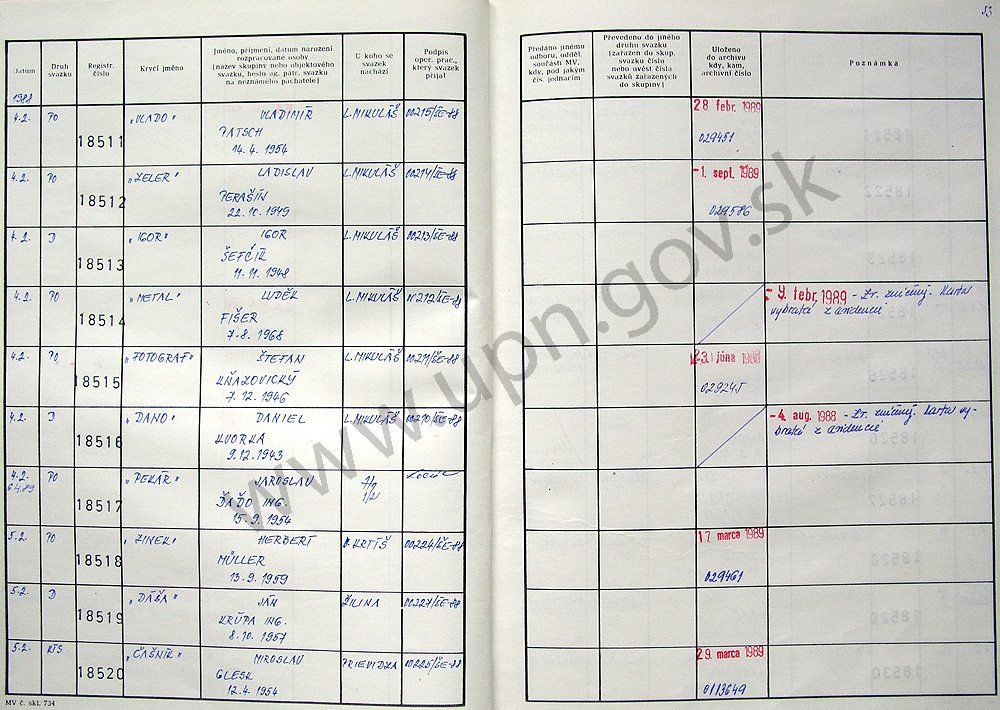 53
Datum
Druh svazku
Registr. číslo
Krycí jméno
Jméno, příjmení, datum narození
rozpracované osoby
[název skupiny nebo objektového
svazku, heslo ag. pátr. svazku
na neznámého pachatele]
U koho se
svazek
nachází
Podpis
oper. prac.,
který svazek
přijal
Předáno jinému
odboru, odděl.
součásti MV,
kdy, pod jakým
čís. jednacím
Převedeno do jiného
druhu svazku
[zařazen do skup.
svazku číslo
nebo uvést čísla
svazků zařazených
do skupiny]
Uloženo
do archivu
kdy, kam,
archivní číslo
Poznámka
1988
4.2. PO 18511 „VLADO" VLADIMÍR L. MIKULÁŠ 00215/ŠE-88 28 febr. 1989
PATSCH 029451
14. 4. 1954
4.2. PO 18512 „ZELER" LADISLAV L. MIKULÁŠ 00214/ŠE-88 -1. sept. 1989
PERAŠÍN 029586
22. 10. 1949
4.2. D 18513 „IGOR" IGOR L. MIKULÁŠ 00213/ŠE-88
ŠEFČÍK
11. 11. 1948
4.2. PO 18514 „METAL" LUDĚK L. MIKULÁŠ 00212/ŠE-88 - 9. febr. 1989 - Zv. zničený. Karta
FIŠER vybratá z evidencie
7. 8. 1968
4.2. PO 18515 „FOTOGRAF" ŠTEFAN L. MIKULÁŠ 00211/ŠE-88 23. júna 1988
KŇAZOVICKÝ 029245
7. 12. 1946
4.2. D 18516 „DANO" DANIEL L. MIKULÁŠ 00210/ŠE-88 -4. aug. 1988 - Zv. zničený. Karta vy-
KVORKA bratá z evidencie
9. 12. 1943
4.2. PO 18517 „PEKÁR" JAROSLAV
ĎAĎO ING.
15. 9. 1954
5.2. PO 18518 „ZINEK" HERBERT V. KRTÍŠ 00224/ŠE-88 17 marca 1989
MÜLLER 029461
13. 9. 1959
5.2. D 18519 „DÁŠA" JÁN ŽILINA 00227/ŠE-88
KRŮPA ING.
8. 10. 1957
5.2. KTS 18520 „ČAŠNÍK" MIROSLAV PRIEVIDZA 00225/ŠE-88 29. marca 1989
GLESK 0113649
12. 4. 1954
MV č. skl. 734
www.upn.gov.sk